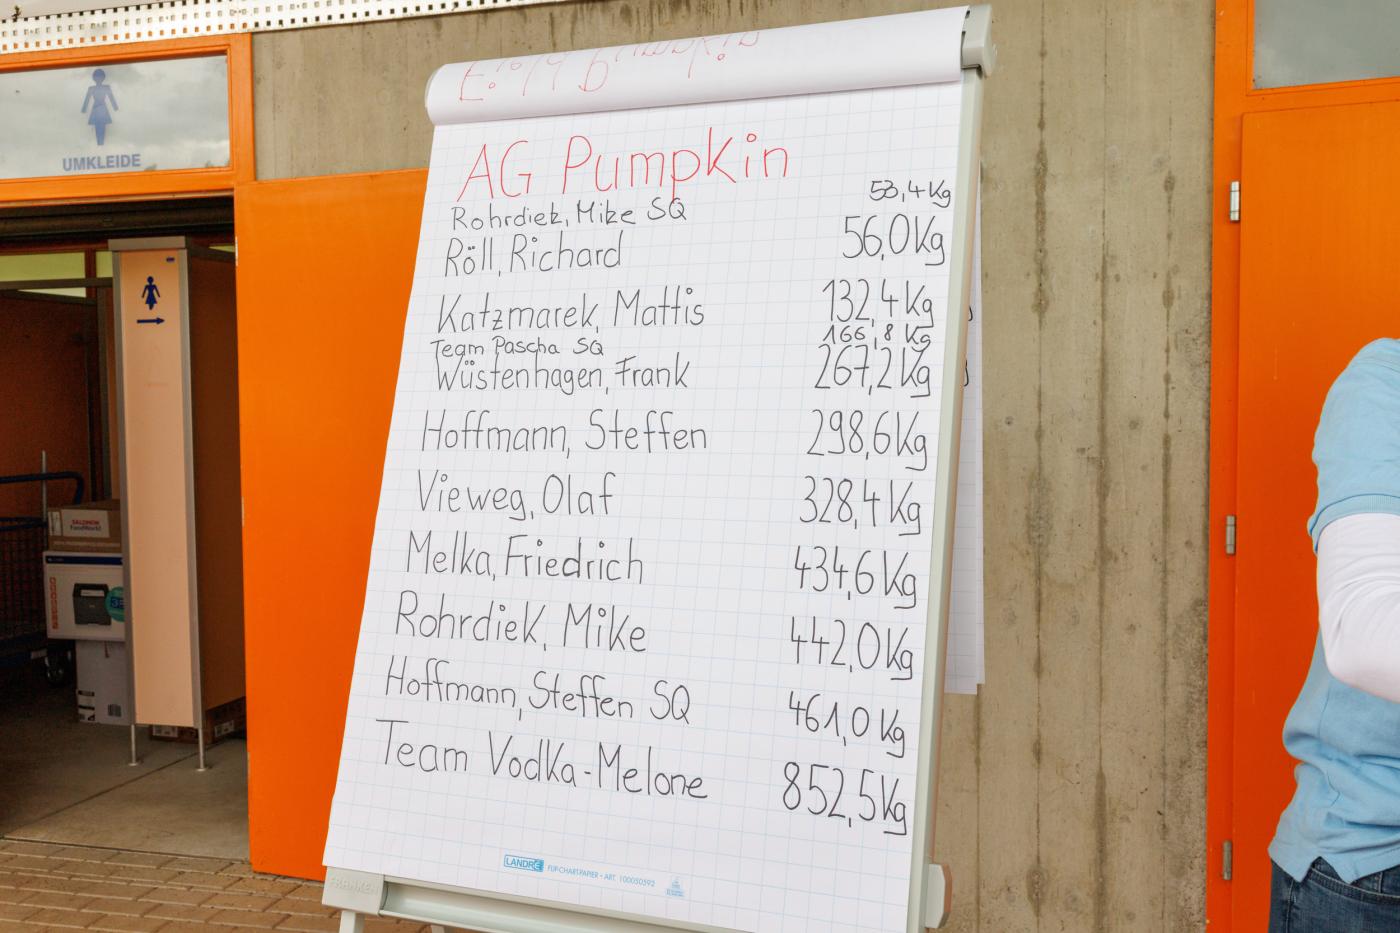 UMKLEIDE
AG Pumpkin
Rohrdiek, Mike SQ 53,4 Kg
Röll, Richard 56,0 Kg
Katzmarek, Mattis 132,4 Kg
Team Pascha SQ 166,8 Kg
Wüstenhagen, Frank 267,2 Kg
Hoffmann, Steffen 298,6 Kg
Vieweg, Olaf 328,4 Kg
Melka, Friedrich 434,6 Kg
Rohrdiek, Mike 442,0 Kg
Hoffmann, Steffen SQ 461,0 Kg
Team Vodka-Melone 852,5 Kg
LANDRÉ FLIP-CHART-PAPIER • ART. 100050592
FRANKEN
SALOMON
FoodWorld